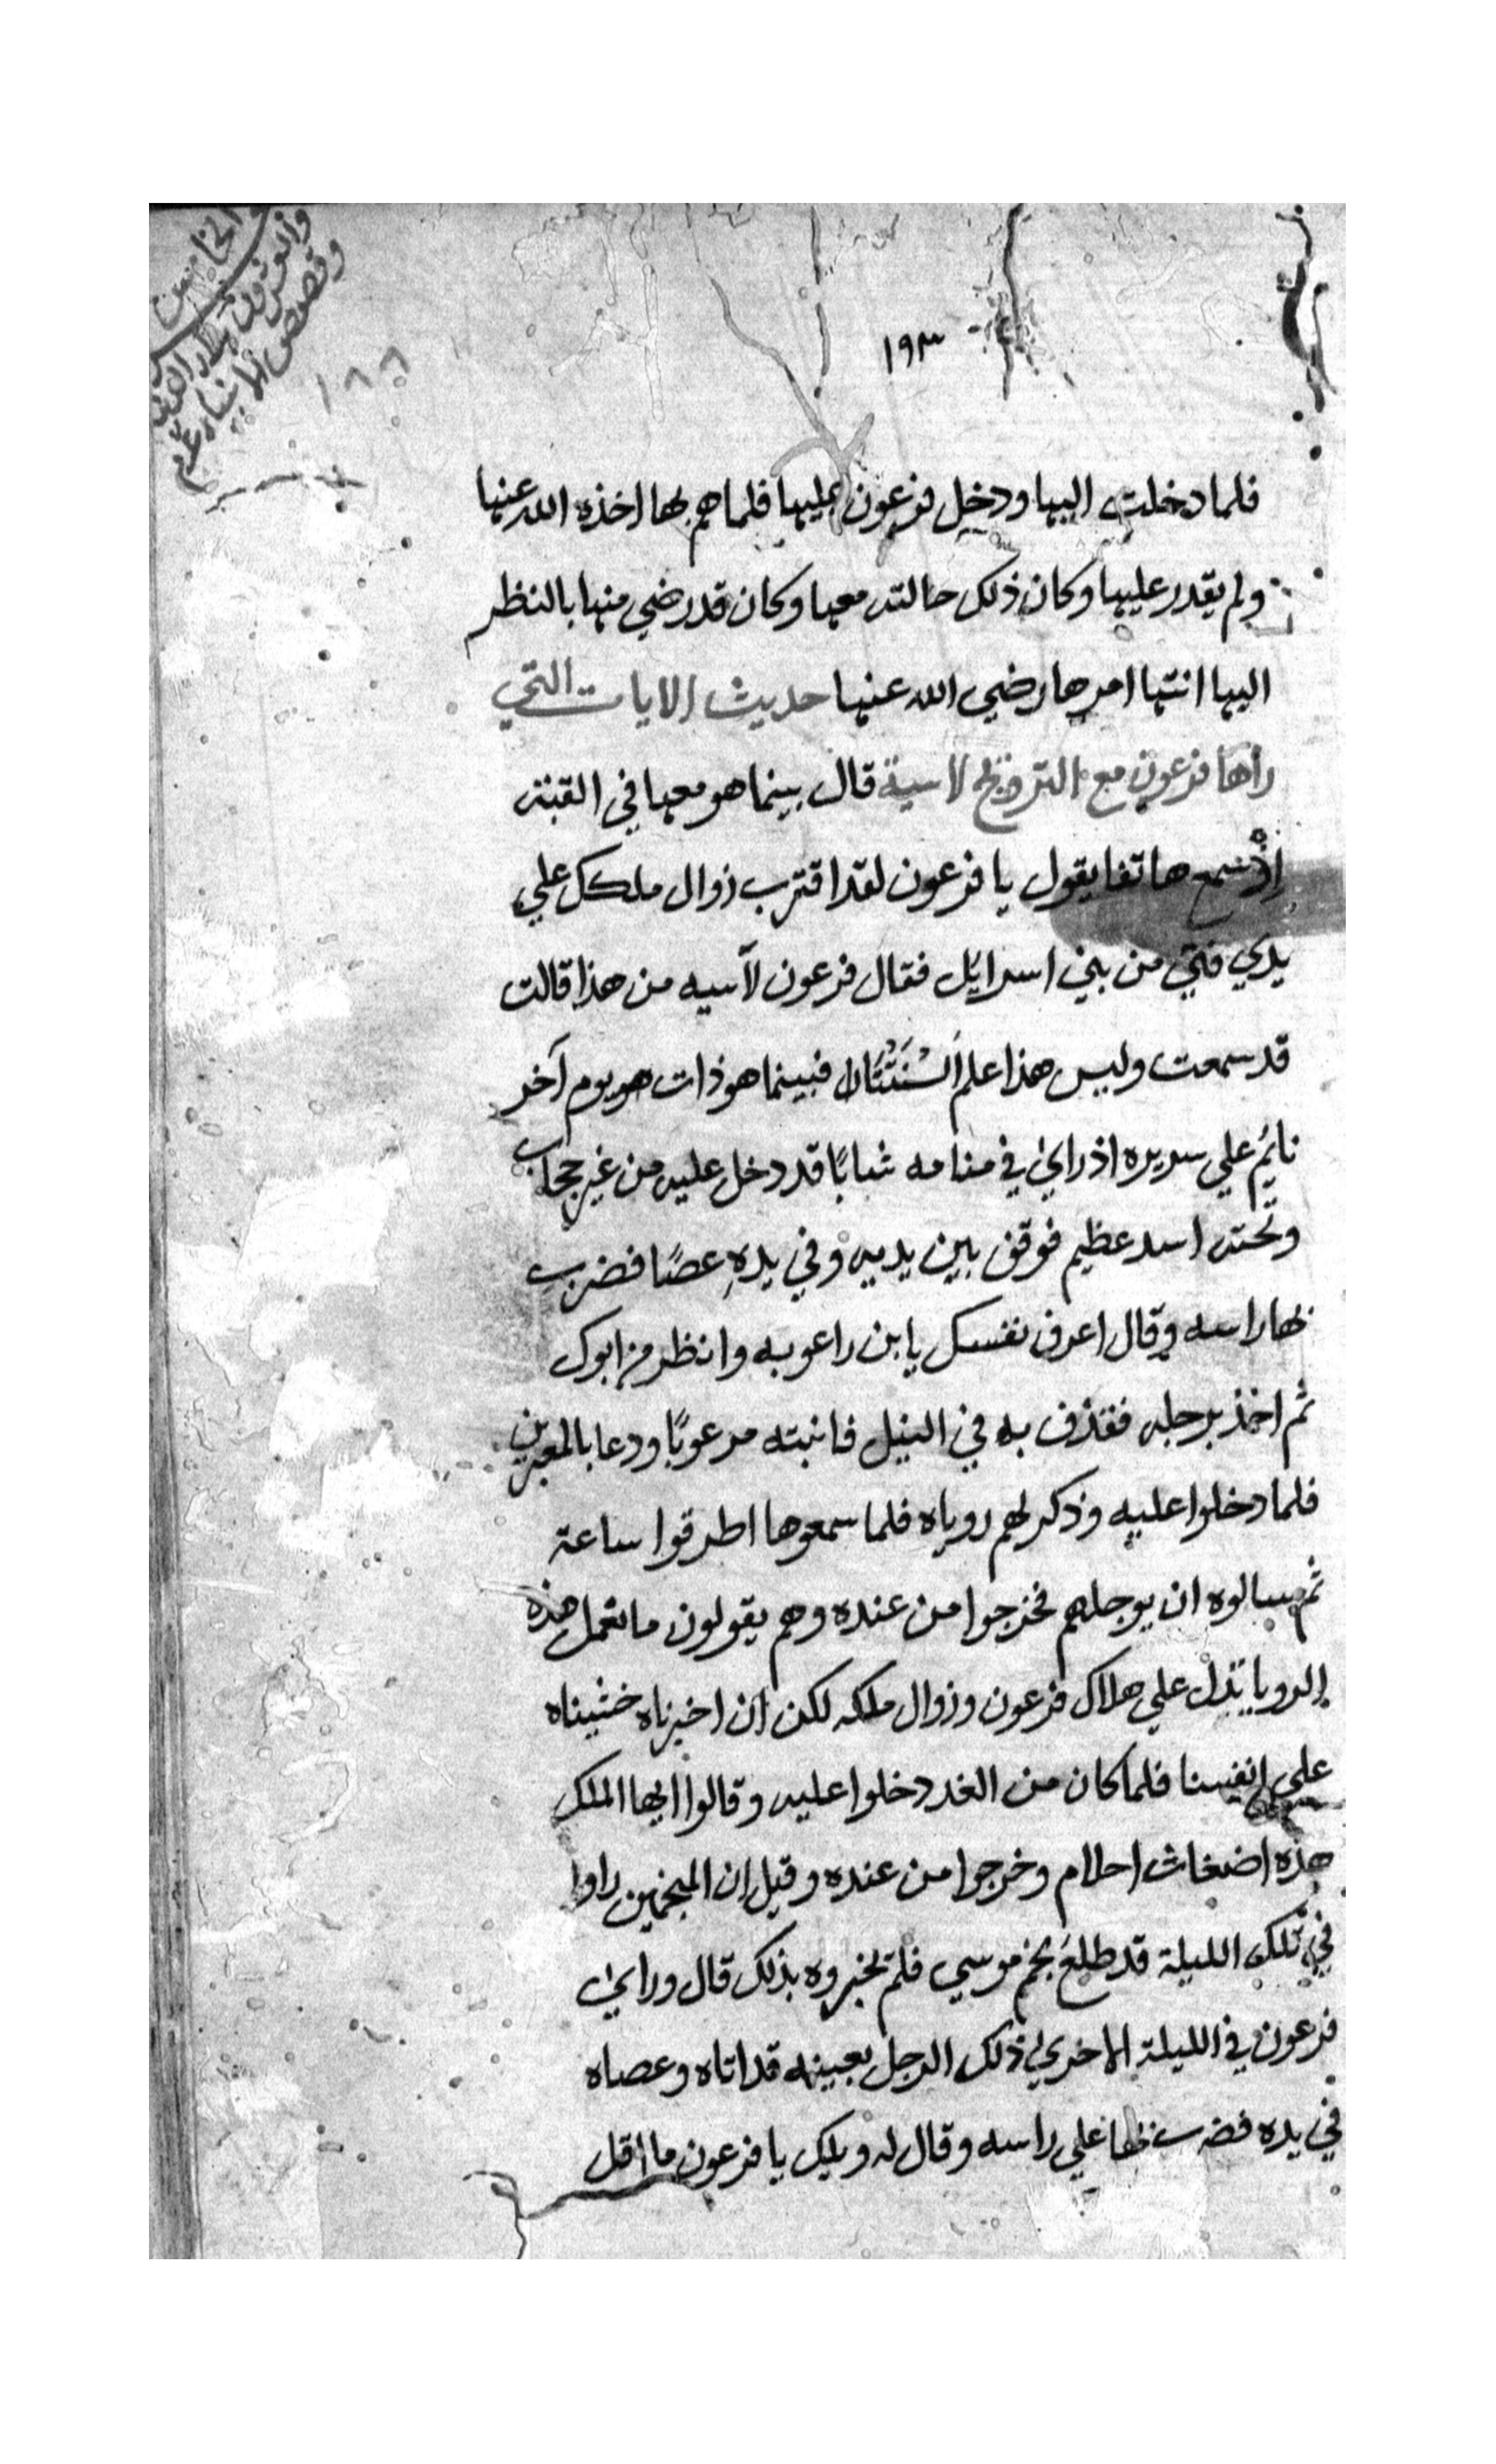 الخامس
والعشرون
وقصص الانبياء عم
١٩٣
١٨٦
فلما دخلت اليها ودخل فرعون عليها فلما هم بها اخذه الله عنها
ولم يقدر عليها وكان ذلك حالته معها وكان قد رضي منها بالنظر
اليها انتها امرها رضي الله عنها حديث الايات التي
راها فرعون مع التزويج لاسية قال بينما هو معها في القبة
إذْ سمع هاتفا يقول يا فرعون لقد اقترب زوال ملكك علي
يدي فتي من بني اسرايل فقال فرعون لآسيه من هذا قالت
قد سمعت وليس هذا علم فبينما هو ذات هو يوم آخر
نايم علي سريره اذ راي في منامه شابًا قد دخل عليه من غير حجاب
وتحته اسد عظيم فوقف بين يديه وفي يدهِ عصًا فضرب
بها راسه وقال اعرف نفسك يا بن راعوبه وانظر من ابوك
ثم اخذ برجله فقذف به في النيل فانبته مرعوبًا ودعا بالمعبرين
فلما دخلوا عليه وذكر لهم روياه فلما سمعوها اطرقوا ساعة
ثم سالوه ان يوجلهم فخرجوا من عنده وهم يقولون ما تعمل هذه
الرويا تدل علي هلاك فرعون وزوال ملكه لكن ان اخبرناه خشيناه
علي انفسنا فلما كان من الغد دخلوا عليه وقالوا ايها الملك
هذه اضغاث احلام وخرجوا من عنده وقيل ان المنجمين راوا
في تلك الليلة قد طلعَ نجم موسي فلم تخبروه بذلك قال وراي
فرعون في الليلة الاخري ذلك الرجل بعينه قد اتاه وعصاه
في يده فضرب بها علي راسه وقال له ويلك يا فرعون ما اقل